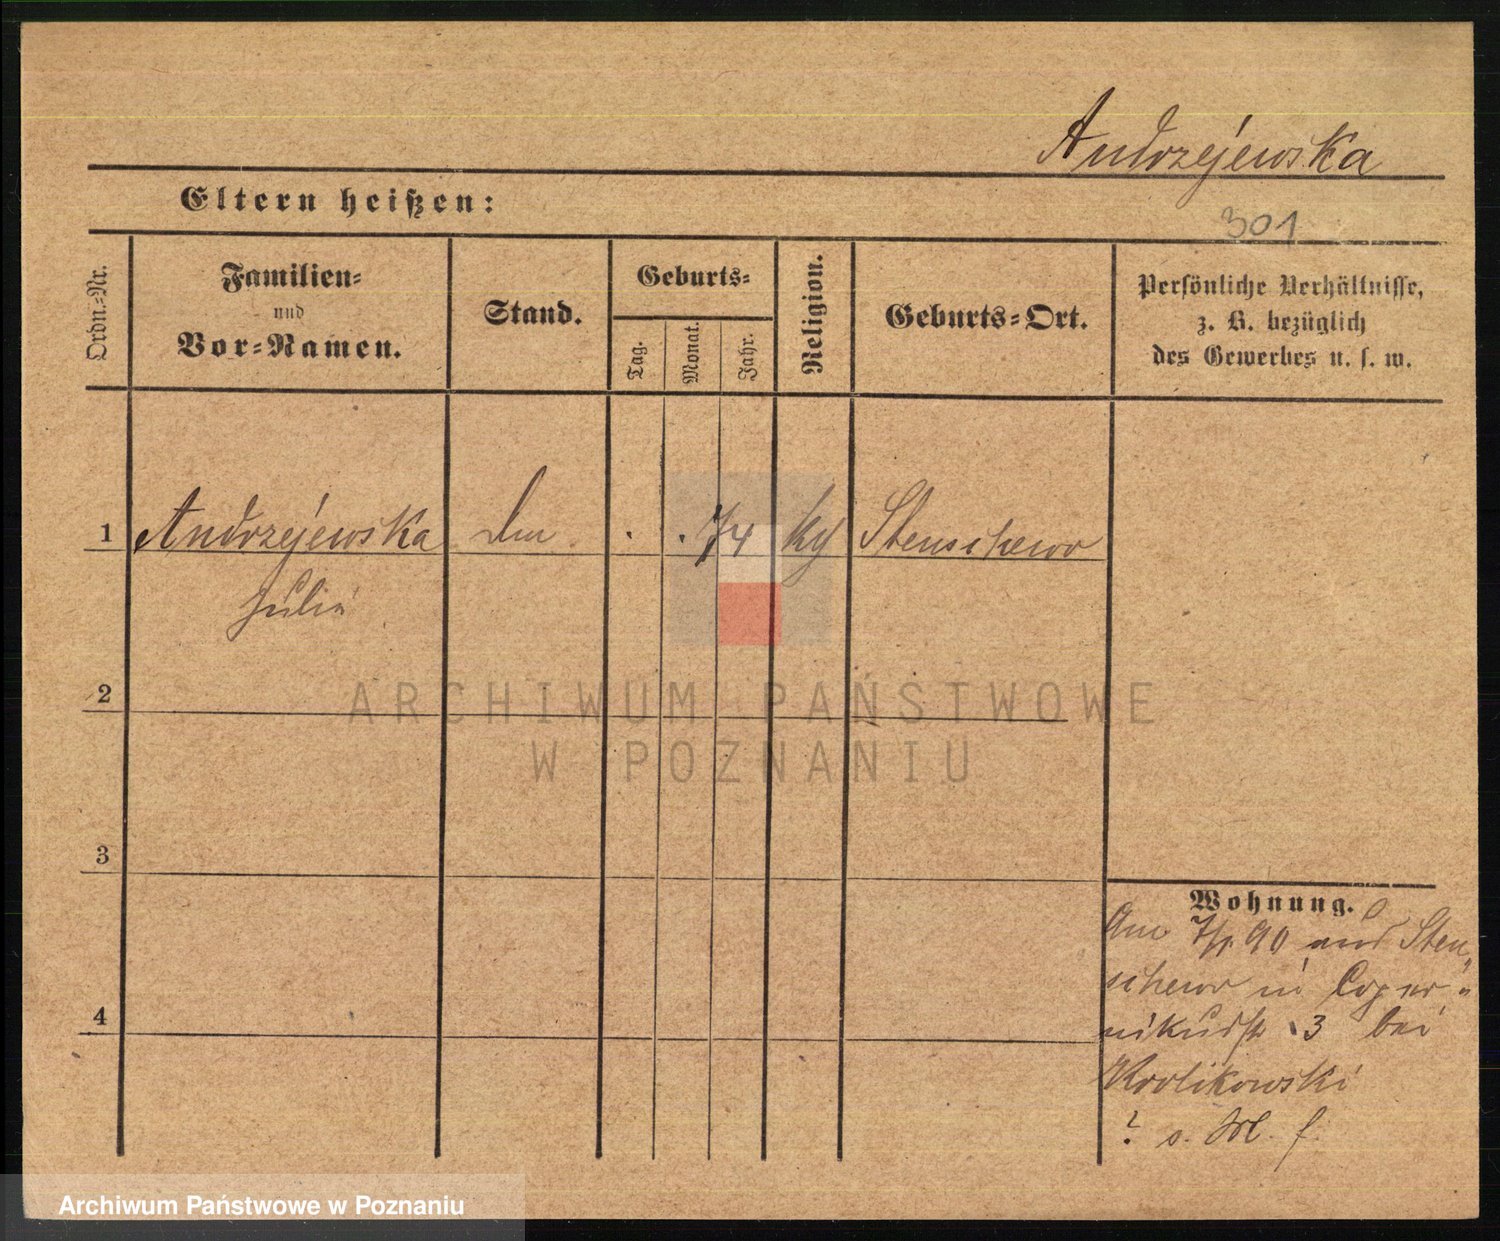 Andrzejewska
Eltern heißen:
301
Ordn.-Nr.
Familien-
und
Vor-Namen.
Stand.
Geburts-
Tag.
Monat.
Jahr.
Religion.
Geburts-Ort.
Persönliche Verhältnisse,
z. B. bezüglich
des Gewerbes u. s. w.
1 Andrzejewska 74 Stenschewo
Julie
2
3
4
Wohnung.
Am 7/1 90 aus Sten„
schewo in Coper„
nikusstr 3 bei
Krolikowski
ARCHIWUM PAŃSTWOWE
W POZNANIU
Archiwum Państwowe w Poznaniu